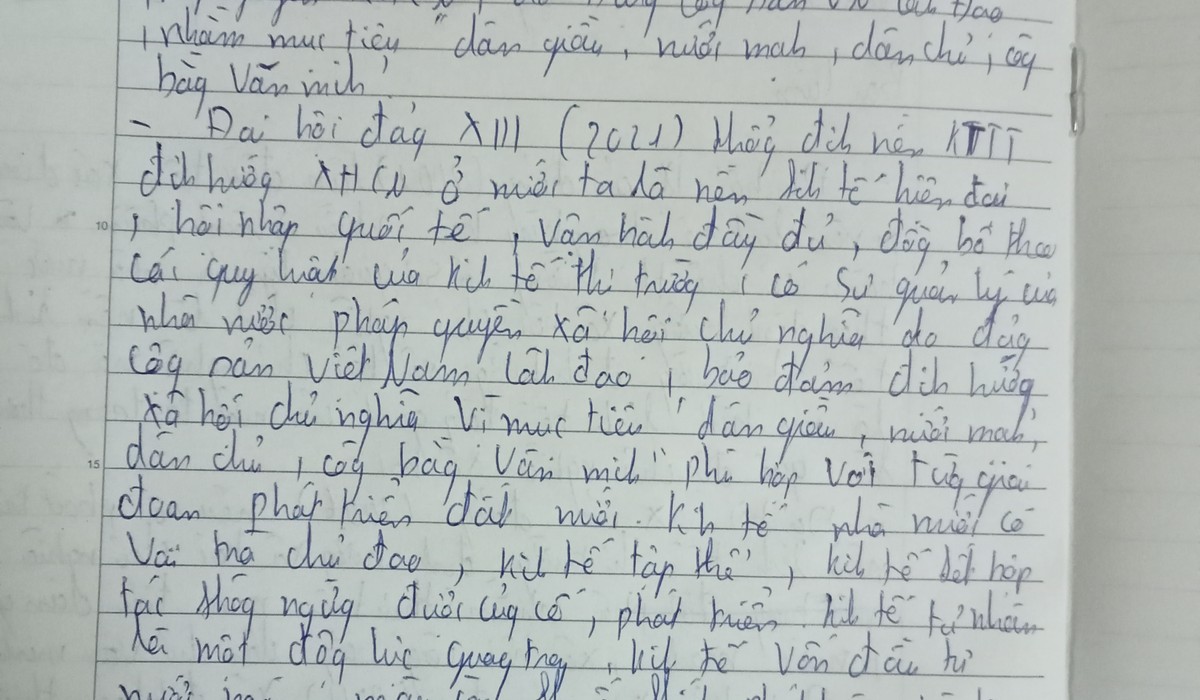 , nhằm mục tiêu "dân giàu, nước mah, dân chủ, côg
bằg văn mih".
- Đại hội đảg XIII (2021) khẳg địh nền KTTT
địh hướg XHCN ở nước ta là nền kih tế hiện đại
, hội nhập quốc tế, vận hàh đầy đủ, đồg bộ theo
các quy luật của kih tế thị trườg, có sự quản lý của
nhà nước pháp quyền xã hội chủ nghĩa do đảg
Côg sản Việt Nam lãh đạo, bảo đảm địh hướg
xã hội chủ nghĩa vì mục tiêu "dân giàu, nước mạh,
dân chủ, côg bằg văn mih" phù hợp với từg giai
đoạn phát triển đất nước. Kih tế nhà nước có
vai trò chủ đạo, kih tế tập thể, kih tế hợp
tác khôg ngừg được củg cố, phát triển. kih tế tư nhân
là một độg lực quag trọg, kih tế vốn đầu tư